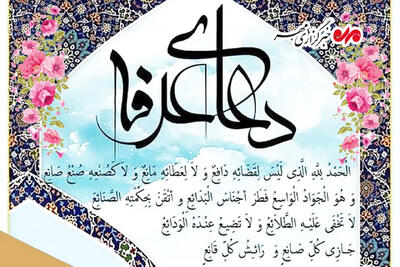 خبرگزاری مهر
دعای عرفه
الحَمْدُ لِلَّهِ الَّذِی لَیْسَ لِقَضَائِهِ دَافِعٌ وَ لَا لِعَطَائِهِ مَانِعٌ وَ لَا كَصُنْعِهِ صُنْعُ صَانِعٍ
وَ هُوَ الْجَوَادُ الْوَاسِعُ فَطَرَ أَجْنَاسَ الْبَدَائِعِ وَ أَتْقَنَ بِحِكْمَتِهِ الصَّنَائِعَ
لَا تَخْفَى عَلَيْهِ الطَّلَائِعُ وَ لَا تَضِيعُ عِنْدَهُ الْوَدَائِعُ
جَازِی كُلِّ صَانِعٍ وَ رَائِشُ كُلِّ قَانِعٍ